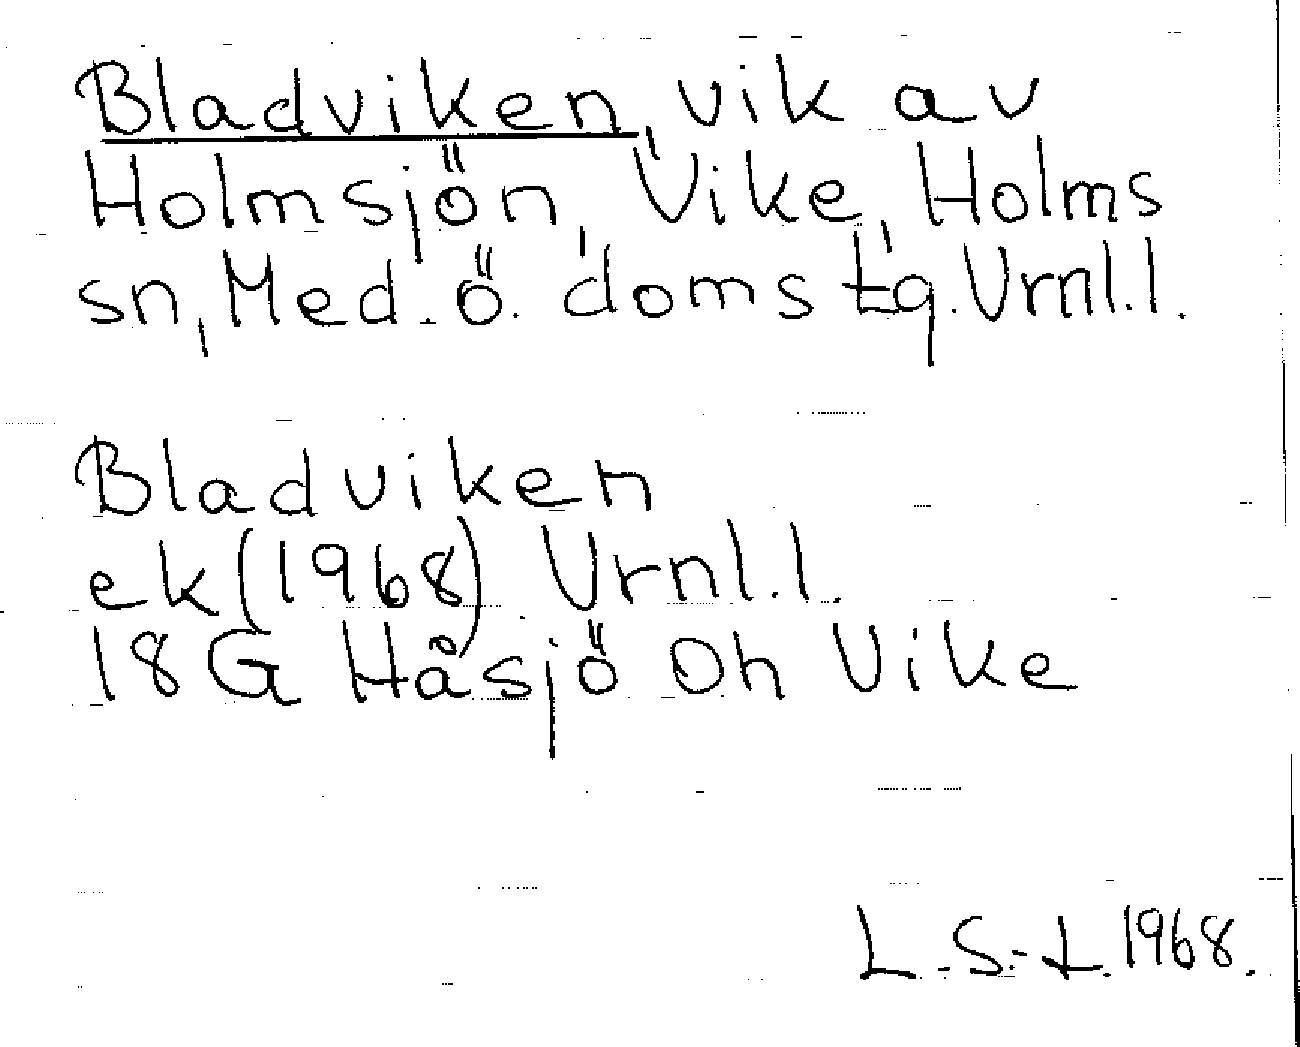 Bladviken, vik av
Holmsjön, Vike, Holms
sn, Med. ö. doms tg. Vrnl.l.
Bladviken
ek (1968) Vrnl.l.
18G Håsjö Oh Vike
L.S.-L. 1968.